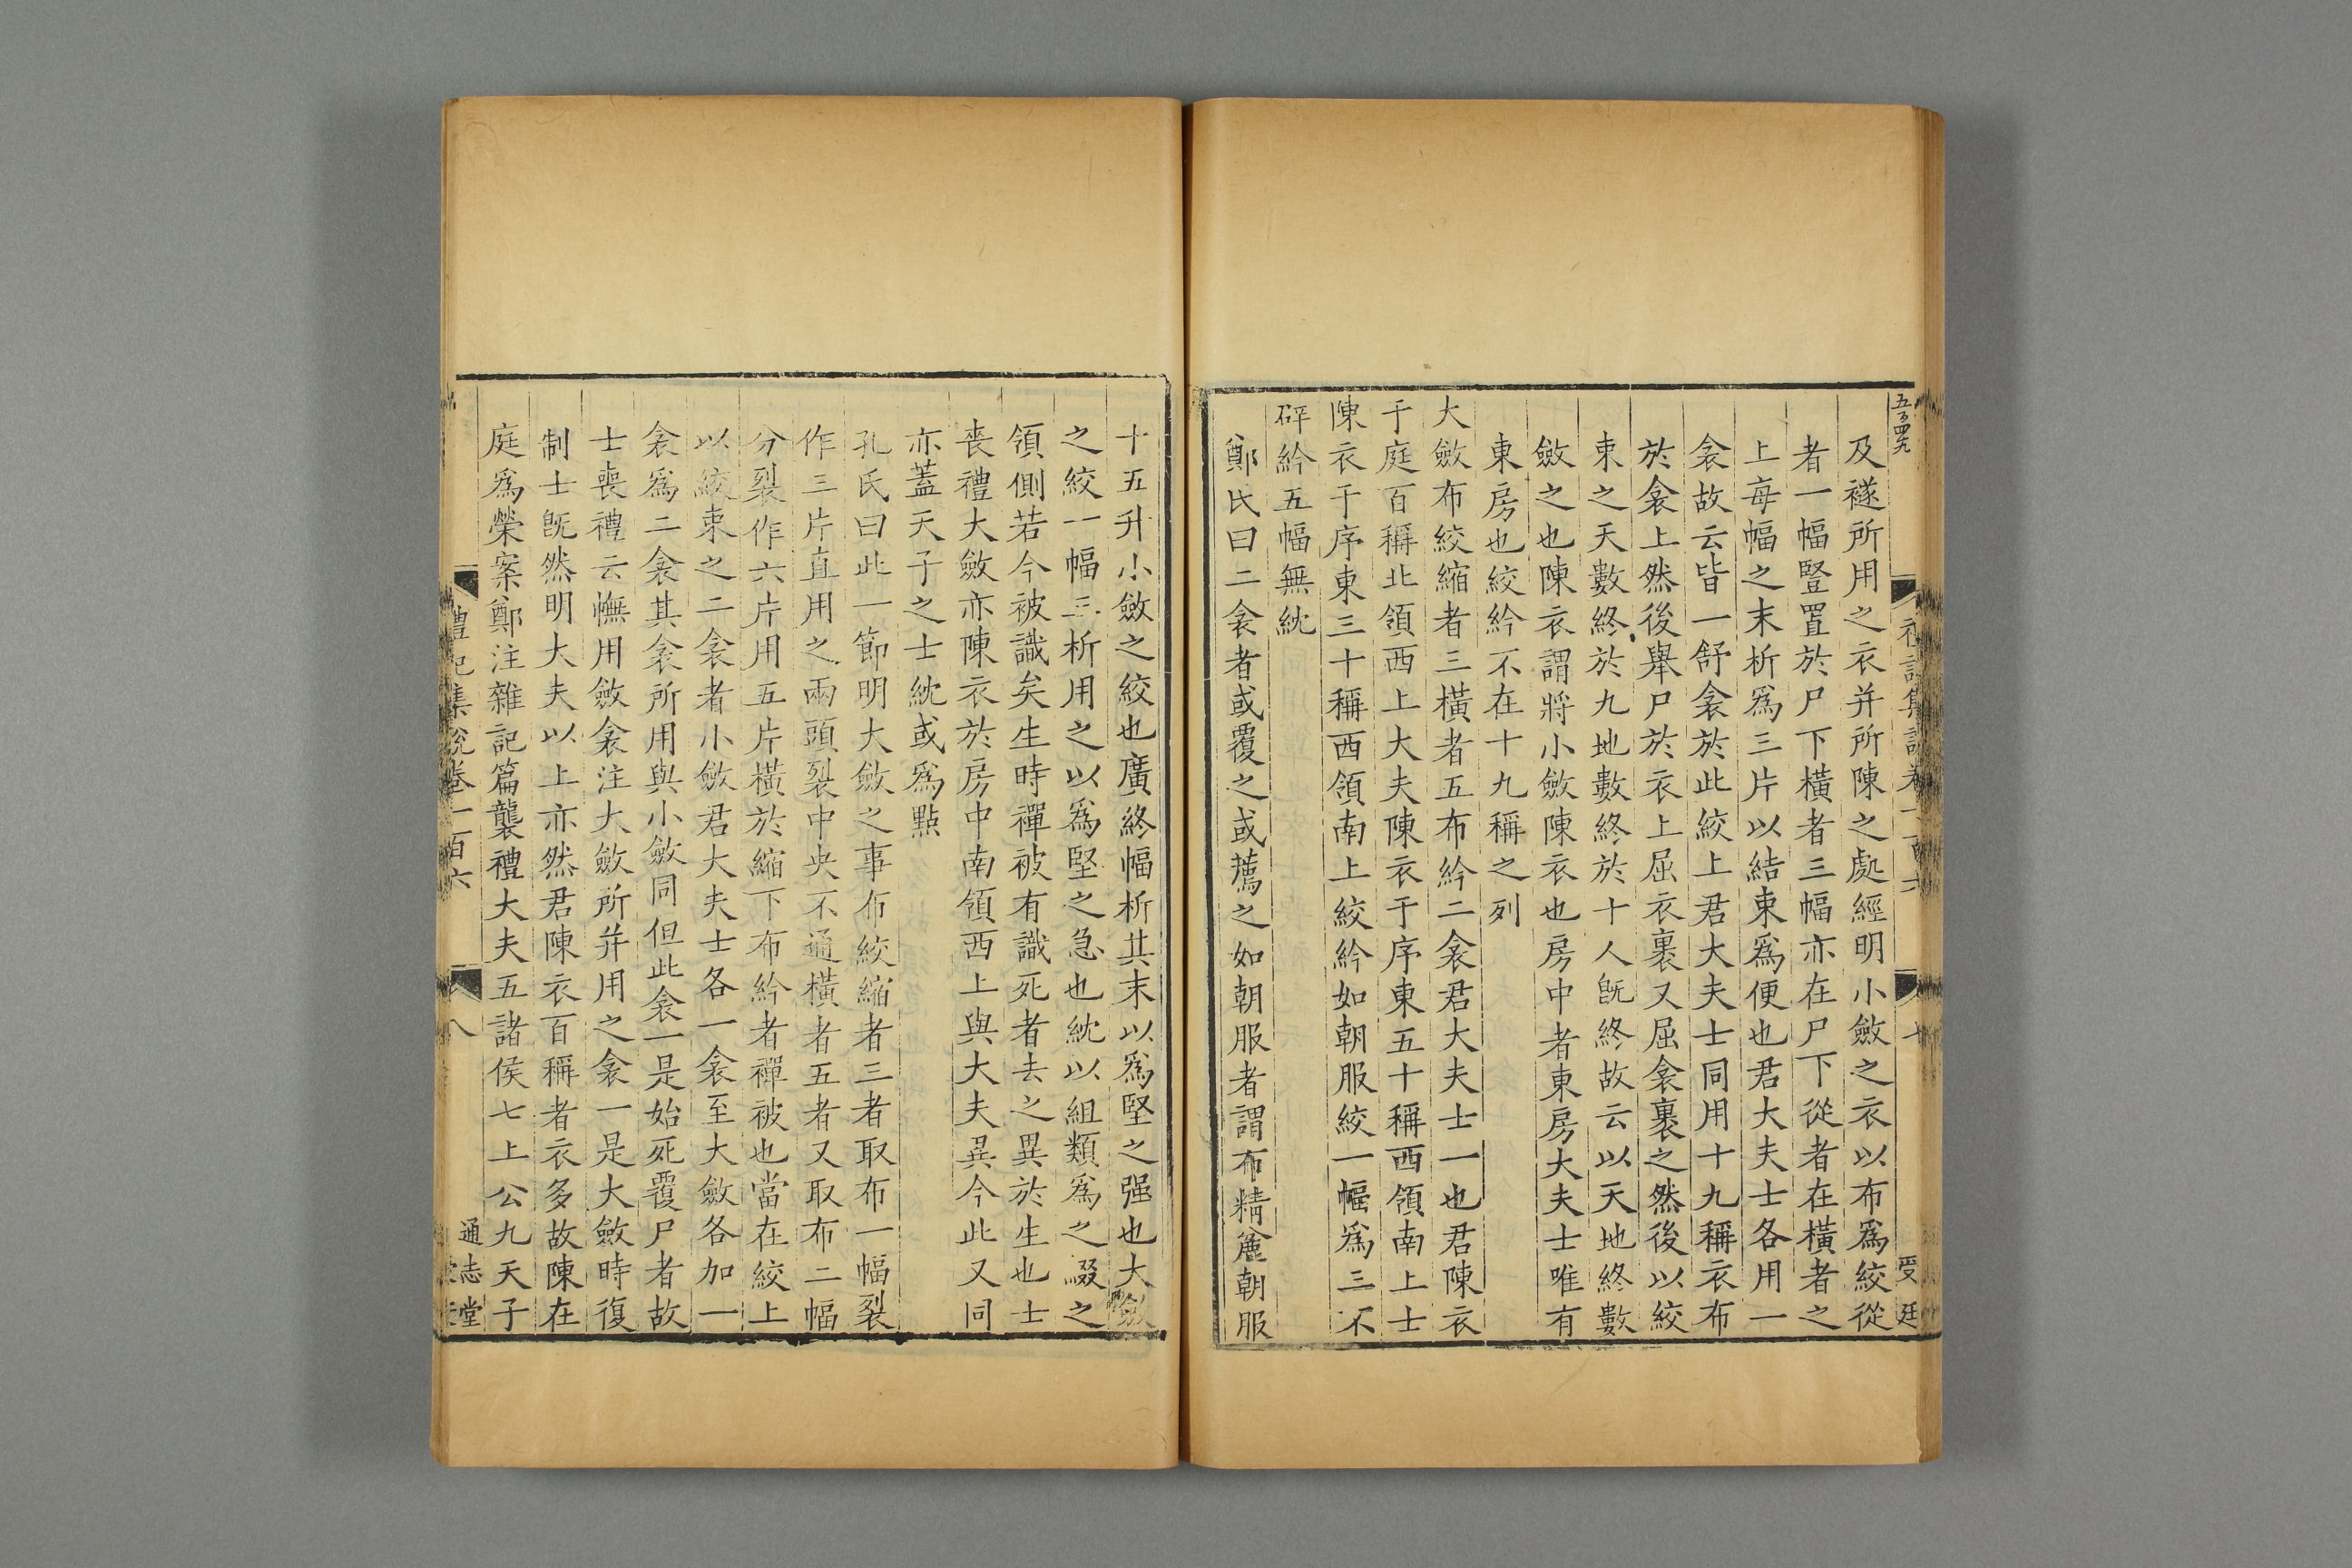 五百四九
及襚所用之衣并所陳之處經明小斂之衣以布爲絞從
者一幅豎置於尸下橫者三幅亦在尸下從者在橫者之
上每幅之末析爲三片以結束爲便也君大夫士各用一
衾故云皆一舒衾於此絞上君大夫士同用十九稱衣布
於衾上然後舉尸於衣上屈衣裹又屈衾裹之然後以絞
束之天數終於九地數終於十人旣終故云以天地終數
斂之也陳衣謂將小斂陳衣也房中者東房大夫士唯有
東房也絞紟不在十九稱之列
大斂布絞縮者三橫者五布紟二衾君大夫士一也君陳衣
于庭百稱北領西上大夫陳衣于序東五十稱西領南上士
陳衣于序東三十稱西領南上絞紟如朝服絞一幅爲三不
辟紟五幅無紞
鄭氏曰二衾者或覆之或薦之如朝服者謂布精麤朝服
十五升小斂之絞也廣終幅析其末以爲堅之强也大斂
之絞一幅三析用之以爲堅之急也紞以組類爲之綴之
領側若今被識矣生時襌被有識死者去之異於生也士
喪禮大斂亦陳衣於房中南領西上與大夫異今此又同
亦蓋天子之士紞或爲點
孔氏曰此一節明大斂之事布絞縮者三者取布一幅裂
作三片直用之兩頭裂中央不通橫者五者又取布二幅
分裂作六片用五片橫於縮下布紟者襌被也當在絞上
以絞束之二衾者小斂君大夫士各一衾至大斂各加一
衾爲二衾其衾所用與小斂同但此衾一是始死覆尸者故
士喪禮云幠用斂衾注大斂所幷用之衾一是大斂時復
制士旣然明大夫以上亦然君陳衣百稱者衣多故陳在
庭爲榮案鄭注雜記篇襲禮大夫五諸侯七上公九天子
禮記集說卷一百六
八
通志堂